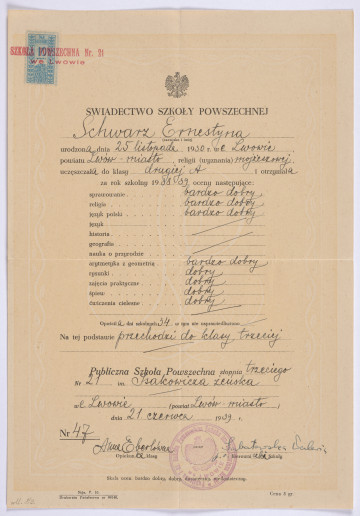 SZKOŁA POWSZECHNA Nr. 21
WE LWOWIE
ŚWIADECTWO SZKOŁY POWSZECHNEJ
Schwarz Ernestyna
urodzona dnia 25 listopada 1930 r. we Lwowie
powiatu Lwów-miasto, religii (wyznania) mojżeszowej,
uczęszczała do klasy drugiej A i otrzymała
za rok szkolny 1938/39 oceny następujące:
sprawowanie bardzo dobry
religia bardzo dobry
język polski bardzo dobry
język
historia
geografia
nauka o przyrodzie
arytmetyka z geometrią bardzo dobry
rysunki dobry
zajęcia praktyczne dobry
śpiew dobry
ćwiczenia cielesne dobry
Opuściła dni szkolnych 34, w tym nie usprawiedliwiono
Na tej podstawie przechodzi do klasy trzeciej
Publiczna Szkoła Powszechna stopnia trzeciego
Nr 21 im. Isakowicza żeńska
we Lwowie (powiat Lwów-miasto),
dnia 21 czerwca 1939 r.
Nr 47
Anna Eberlówna
Opiekun klasy
Kierownik szkoły
Skala ocen: bardzo dobry, dobry, dostateczny, niedostateczny.
Cena 5 gr.